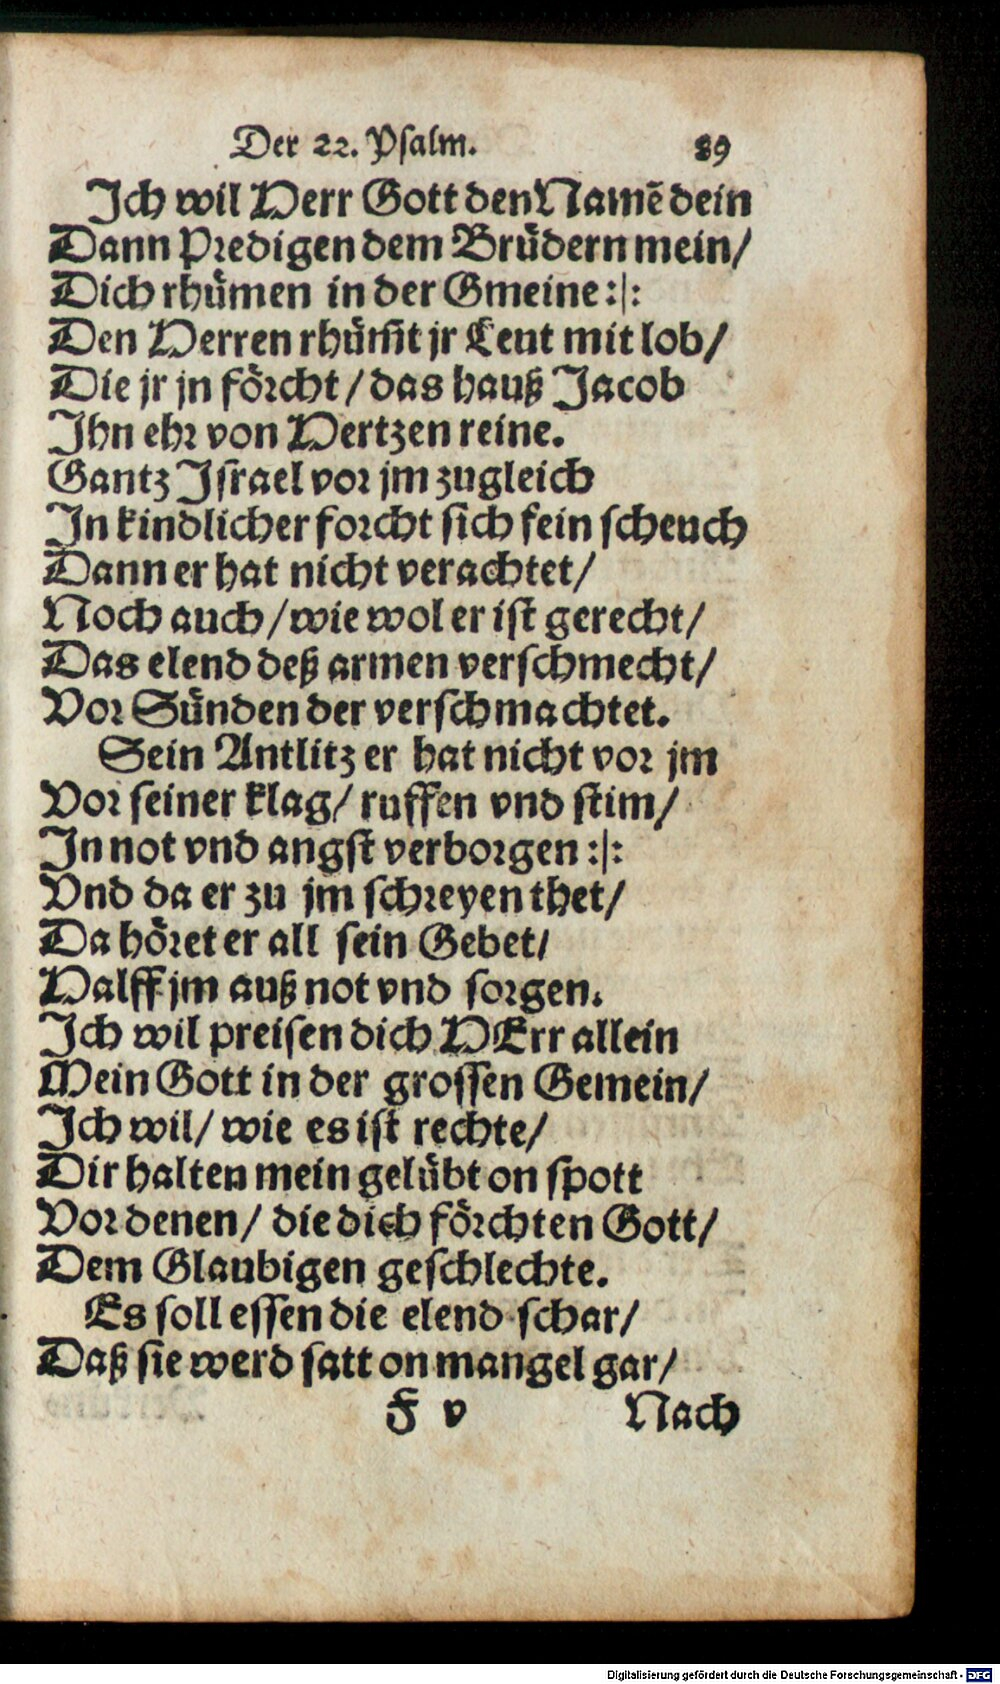 Der 22. Psalm. 89
Ich wil Herr Gott den Namẽ dein
Dann Predigen dem Brüdern mein/
Dich rhümen in der Gmeine :|:
Den Herren rhüm̃t jr Leut mit lob/
Die jr jn förcht / das hauß Jacob
Ihn ehr von Hertzen reine.
Gantz Israel vor jm zugleich
In kindlicher forcht sich fein scheuch
Dann er hat nicht verachtet/
Noch auch / wie wol er ist gerecht/
Das elend deß armen verschmecht/
Vor Sünden der verschmachtet.
Sein Antlitz er hat nicht vor jm
Vor seiner klag/ ruffen vnd stim/
In not vnd angst verborgen :|:
Vnd da er zu jm schreyen thet/
Da höret er all sein Gebet/
Halff jm auß not vnd sorgen.
Ich wil preisen dich HErr allein
Mein Gott in der grossen Gemein/
Ich wil/ wie es ist rechte/
Dir halten mein gelübt on spott
Vor denen/ die dich förchten Gott/
Dem Glaubigen geschlechte.
Es soll essen die elend schar/
Daß sie werd satt on mangel gar/
F v Nach
Digitalisierung gefördert durch die Deutsche Forschungsgemeinschaft - DFG